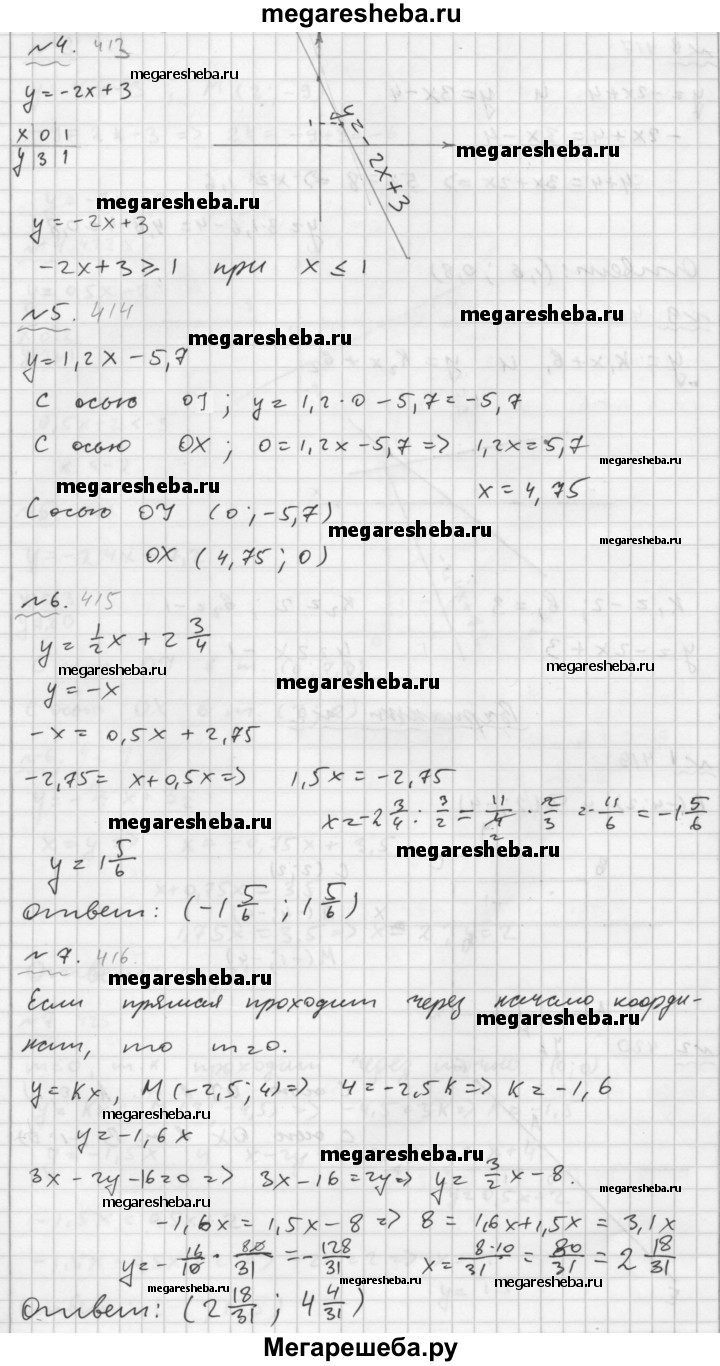 megaresheba.ru
№4. 413
megaresheba.ru
y = -2x + 3
x 0 1
y 3 1
1
y = -2x + 3
megaresheba.ru
megaresheba.ru
y = -2x + 3
-2x + 3 ⩾ 1 при x ≤ 1
№5. 414
megaresheba.ru
megaresheba.ru
y = 1,2x - 5,7
С осью OY; y = 1,2 · 0 - 5,7 = -5,7
С осью OX; 0 = 1,2x - 5,7 => 1,2x = 5,7
megaresheba.ru
megaresheba.ru
x = 4,75
С осью OY (0; -5,7)
megaresheba.ru
megaresheba.ru
OX (4,75; 0)
№6. 415
y = 1/2 x + 2 3/4
megaresheba.ru
megaresheba.ru
megaresheba.ru
y = -x
-x = 0,5x + 2,75
-2,75 = x + 0,5x => 1,5x = -2,75
megaresheba.ru
x = -2 3/4 : 3/2 = 11/4 · 2/3 = -11/6 = -1 5/6
2
megaresheba.ru
y = 1 5/6
Ответ: (-1 5/6; 1 5/6)
№7. 416.
megaresheba.ru
Если прямая проходит через начало коорди-
megaresheba.ru
нат, то m=0.
y = Kx, M(-2,5; 4) => 4 = -2,5K => K = -1,6
megaresheba.ru
y = -1,6x
megaresheba.ru
3x - 2y - 16 = 0 => 3x - 16 = 2y => y = 3/2 x - 8.
megaresheba.ru
-1,6x = 1,5x - 8 => 8 = 1,6x + 1,5x = 3,1x
y = -16/10 · 80/31 = -128/31 x = 8·10/31 = 80/31 = 2 18/31
megaresheba.ru
megaresheba.ru
megaresheba.ru
Ответ: (2 18/31; 4 4/31)
Мегарешеба.ру